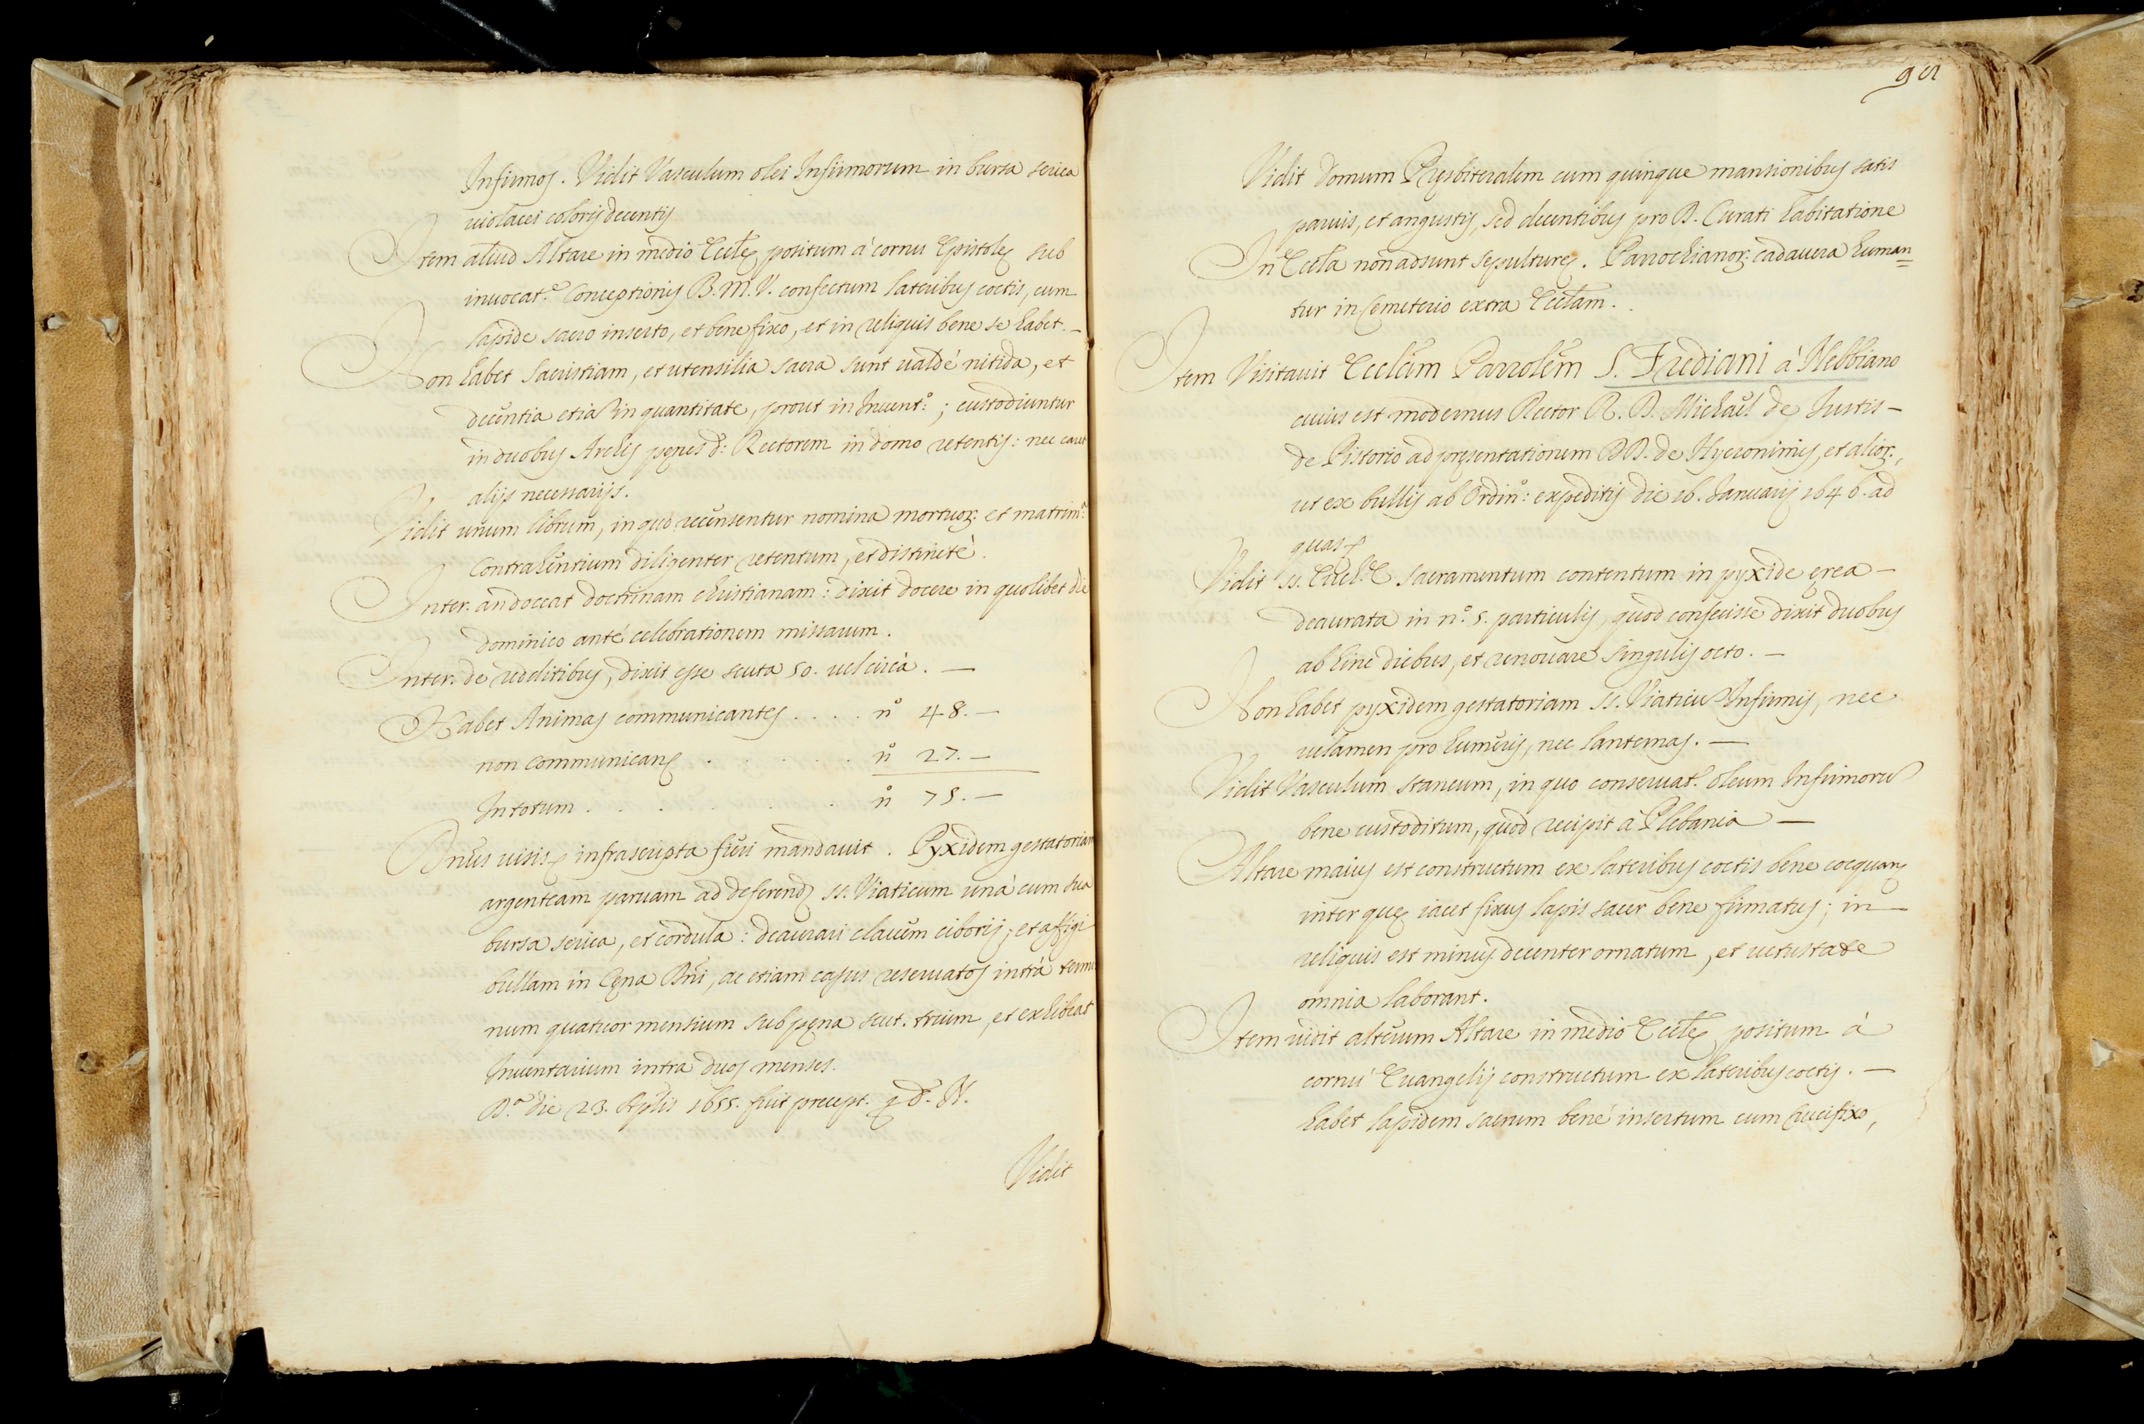 Infirmos. Vidit Vasculum olei Infirmorum in bursa serica
uiolacei coloris decentis
Item aliud Altare in medio Eccłę positum à cornu Epistolę sub
inuocat.e Conceptionis B. M. V. confectum lateribus coctis, cum
lapide sacro inserto, et bene fixo, et in reliquis bene se habet. –
Non habet Sacristiam, et utensilia sacra sunt ualdè nitida, et
decentia etiã in quantitate, prout in Inuent.o; custodiuntur
in duobus Archis penes d: Rectorem in domo retentis: nec caret
alijs necessarijs.
Vidit unum librum, in quo recensentur nomina mortuor: et matrim.
Contrahentium diligenter retentum, et distinctè.
Inter: an doceat doctrinam christianam: dixit docere in quolibet die
dominico antè celebrationem missarum.
Inter: de redditibus, dixit esse scuta 50. uel circà. –
Habet Animas communicantes . . . . no 48. –
non communicanȝ . . . . . . no 27. –
In totum . . . . . . . no 75. –
Dnus uisisȝ infrascripta fieri mandauit. Pyxidem gestatoriam
argenteam paruam ad deferendȝ SS. Viaticum unà cum sua
bursa serica, et cordula: deaurari clauem ciborij; et affigi
bullam in Cęna Dni, ac etiam casus reseruatos intrà termi
num quatuor mensium sub pęna scut. trium, et exhibeat
Inuentarium intra duos menses.
D.a die 23. Aplis 1655. fuit precept.
Vidit
95
Vidit domum Pręsbiteralem cum quinque mansionibus satis
paruis, et angustis, sed decentibus pro D. Curati habitatione
In Eccła non adsunt sepulturę. Parrochianor: cadauera human=
tur in Cemeterio extra Eccłam.
Item Visitauit Ecclẽm Parrolẽm S. Frediani à Nebbiano
cuius est modernus Rector R. D. Michaël de Iustis –
de Pistorio ad pręsentationem DD. de Hyeronimis, et alior:,
ut ex bullis ab Ordin.o: expeditis die 16. Ianuarij 1646. ad
quasȝ
Vidit SS. Euch.e Sacramentum contentum in pyxide ęrea –
deaurata in n.o 5. particulis, quod confecisse dixit duobus
ab hinc diebus, et renouare singulis octo. –
Non habet pyxidem gestatoriam SS. Viaticũ Infirmis, nec
uelamen pro humeris, nec lanternas. –
Vidit Vasculum staneum, in quo conseruat.r oleum Infirmorũ
bene custoditum, quod recipit à Plebania –
Altare maius est constructum ex lateribus coctis bene coequanȝ
inter quę iacet fixus lapis sacer bene firmatus; in –
reliquis est minus decenter ornatum, et uetustate
omnia laborant.
Item uidit alterum Altare in medio Eccłę positum à
cornu Euangelij constructum ex lateribus coctis. –
habet lapidem sacrum benè insertum cum Crucifixo,